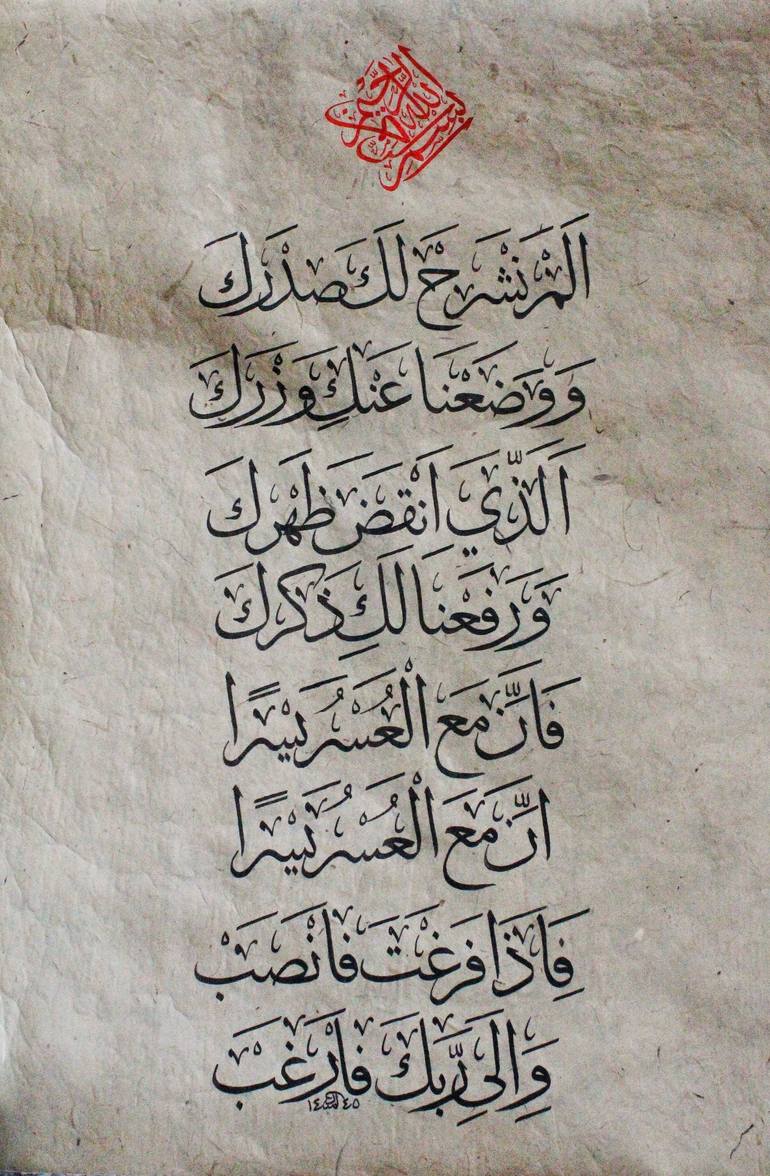 بسم الله الرحمن الرحيم
اَلَمْ نَشْرَحْ لَكَ صَدْرَكَ
وَوَضَعْنَا عَنْكَ وِزْرَكَ
اَلَّذِي اَنْقَضَ ظَهْرَكَ
وَرَفَعْنَا لَكَ ذِكْرَكَ
فَاِنَّ مَعَ الْعُسْرِ يُسْرًا
اِنَّ مَعَ الْعُسْرِ يُسْرًا
فَاِذَا فَرَغْتَ فَانْصَبْ
وَاِلَى رَبِّكَ فَارْغَبْ